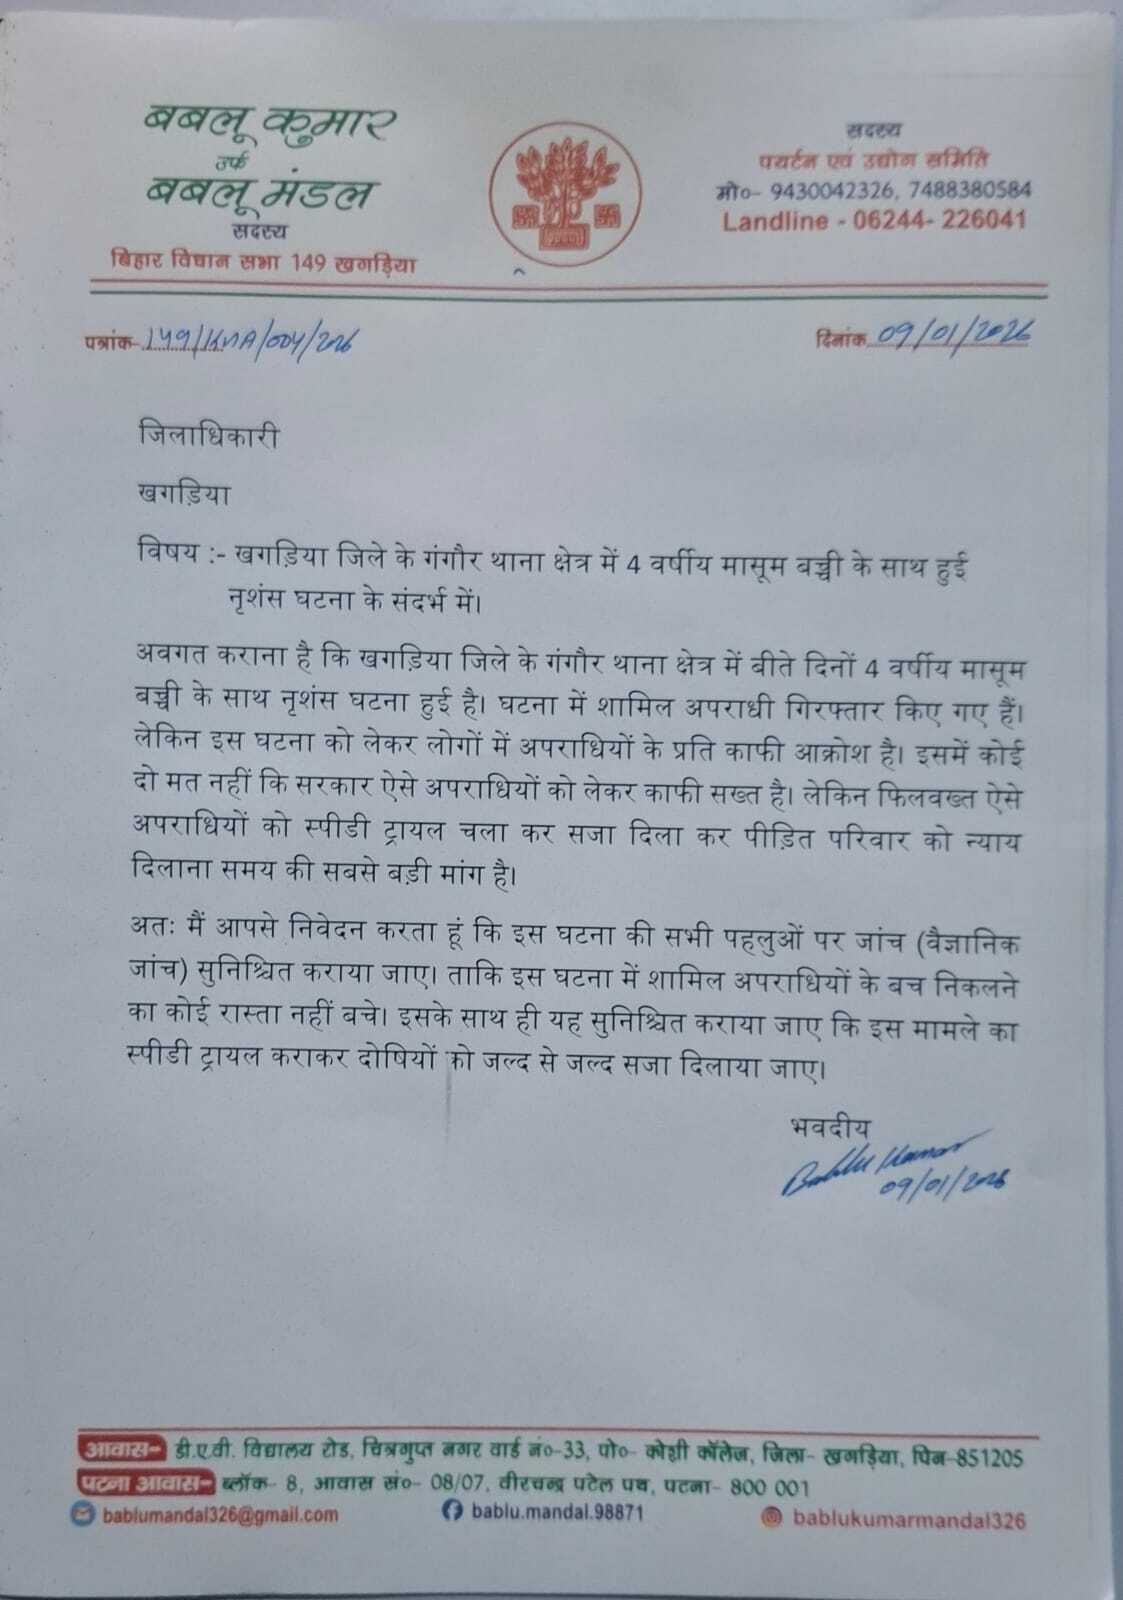 बबलू कुमार
उर्फ
बबलू मंडल
सदस्य
बिहार विधान सभा 149 खगड़िया
सदस्य
पर्यटन एवं उद्योग समिति
मो०- 9430042326, 7488380584
Landline - 06244- 226041
पत्रांक- 149/KMA/004/2026
दिनांक 09/01/2026
जिलाधिकारी
खगड़िया
विषय :- खगड़िया जिले के गंगौर थाना क्षेत्र में 4 वर्षीय मासूम बच्ची के साथ हुई
नृशंस घटना के संदर्भ में।
अवगत कराना है कि खगड़िया जिले के गंगौर थाना क्षेत्र में बीते दिनों 4 वर्षीय मासूम
बच्ची के साथ नृशंस घटना हुई है। घटना में शामिल अपराधी गिरफ्तार किए गए हैं।
लेकिन इस घटना को लेकर लोगों में अपराधियों के प्रति काफी आक्रोश है। इसमें कोई
दो मत नहीं कि सरकार ऐसे अपराधियों को लेकर काफी सख्त है। लेकिन फिलवख्त ऐसे
अपराधियों को स्पीडी ट्रायल चला कर सजा दिला कर पीड़ित परिवार को न्याय
दिलाना समय की सबसे बड़ी मांग है।
अतः मैं आपसे निवेदन करता हूं कि इस घटना की सभी पहलुओं पर जांच (वैज्ञानिक
जांच) सुनिश्चित कराया जाए। ताकि इस घटना में शामिल अपराधियों के बच निकलने
का कोई रास्ता नहीं बचे। इसके साथ ही यह सुनिश्चित कराया जाए कि इस मामले का
स्पीडी ट्रायल कराकर दोषियों को जल्द से जल्द सजा दिलाया जाए।
भवदीय
Bablu Kumar
09/01/2026
आवास- डी.ए.वी. विद्यालय रोड, चित्रगुप्त नगर वार्ड नं०-33, पो०- कोशी कॉलेज, जिला- खगड़िया, पिन-851205
पटना आवास- ब्लॉक- 8, आवास सं०- 08/07, वीरचन्द्र पटेल पथ, पटना- 800 001
bablumandal326@gmail.com
bablu.mandal.98871
bablukumarmandal326